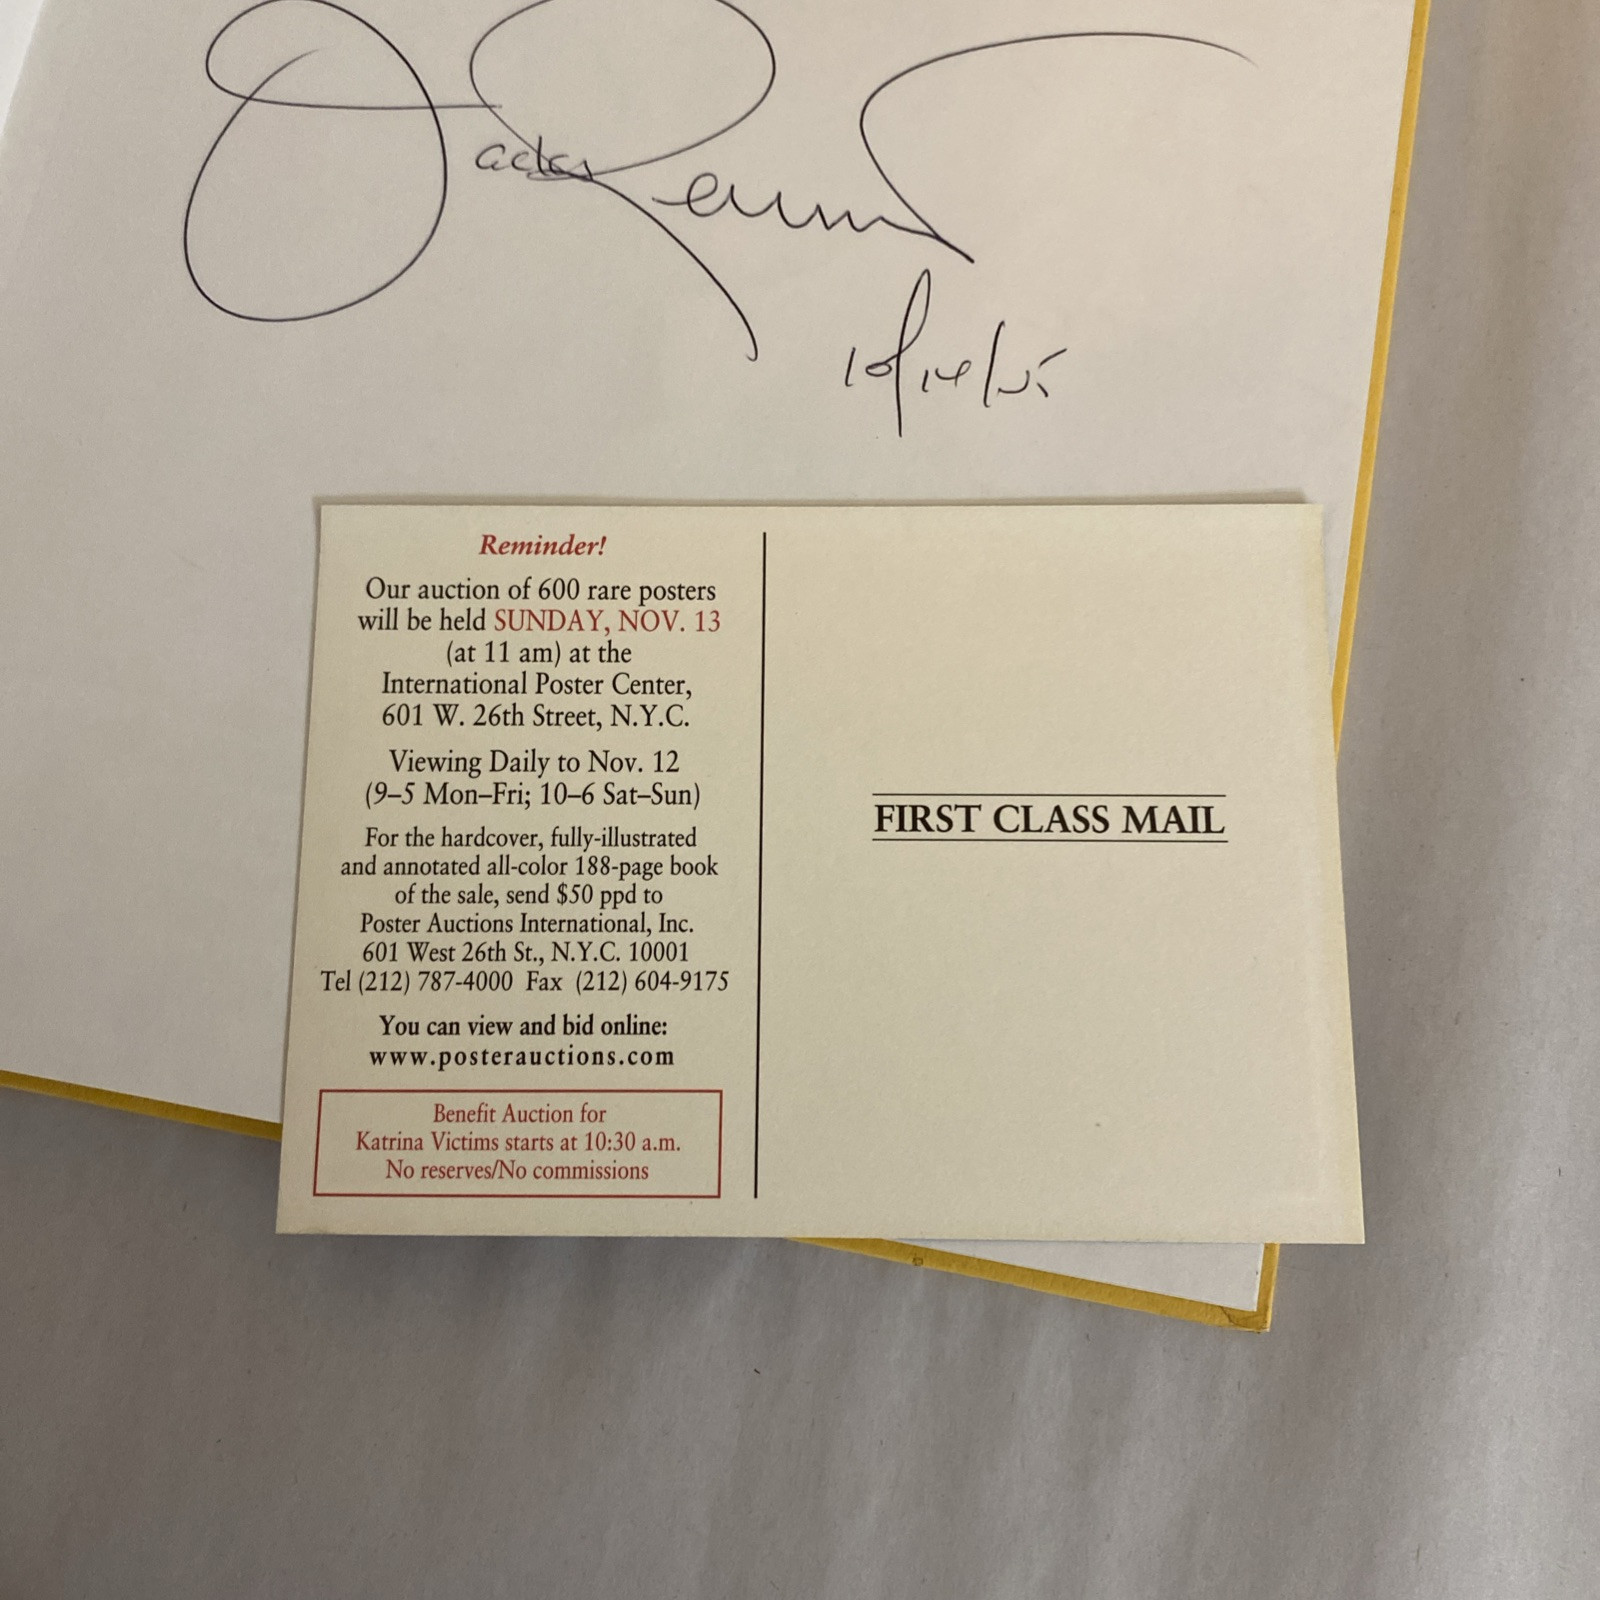 Jack Rennert
Reminder!
Our auction of 600 rare posters
will be held SUNDAY, NOV. 13
(at 11 am) at the
International Poster Center,
601 W. 26th Street, N.Y.C.
Viewing Daily to Nov. 12
(9–5 Mon–Fri; 10–6 Sat–Sun)
For the hardcover, fully-illustrated
and annotated all-color 188-page book
of the sale, send $50 ppd to
Poster Auctions International, Inc.
601 West 26th St., N.Y.C. 10001
Tel (212) 787-4000 Fax (212) 604-9175
You can view and bid online:
www.posterauctions.com
Benefit Auction for
Katrina Victims starts at 10:30 a.m.
No reserves/No commissions
FIRST CLASS MAIL